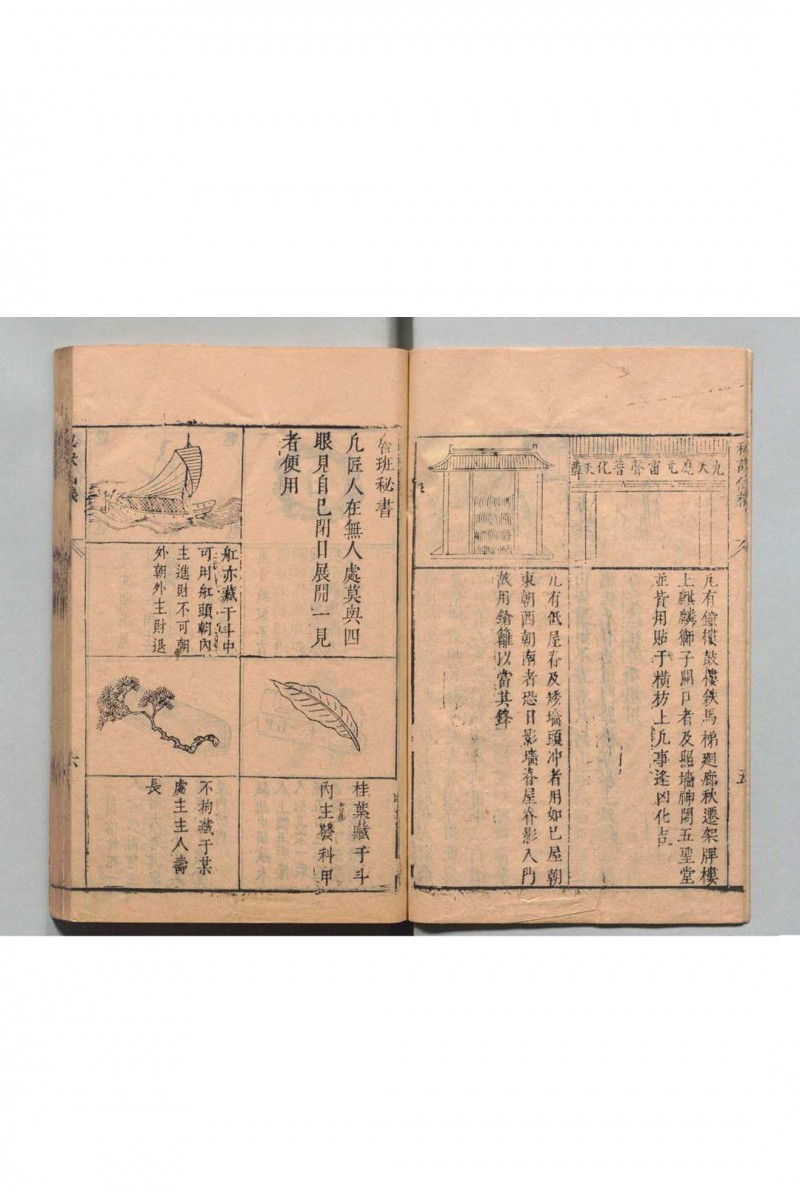 九天應元雷聲普化天尊
凡有鐘樓鼓樓鉄馬梯廻廊秋遷架牌樓
上麒麟獅子開口者及照墻神閣五聖堂
並皆用貼于橫枋上凡事逢凶化吉
凡有低屋脊及矮墻頭冲者用如巳屋朝
東朝西朝南者恐日影墻脊屋脊影入門
故用鎗籬以當其鋒
五
魯班秘書
凡匠人在無人處莫與四
眼見自巳閉目展開一見
者便用
桂葉藏于斗
內主發科甲
舡亦藏于斗中
可用舡頭朝內
主進財不可朝
外朝外主財退
不拘藏于某
處主主人壽
長
六